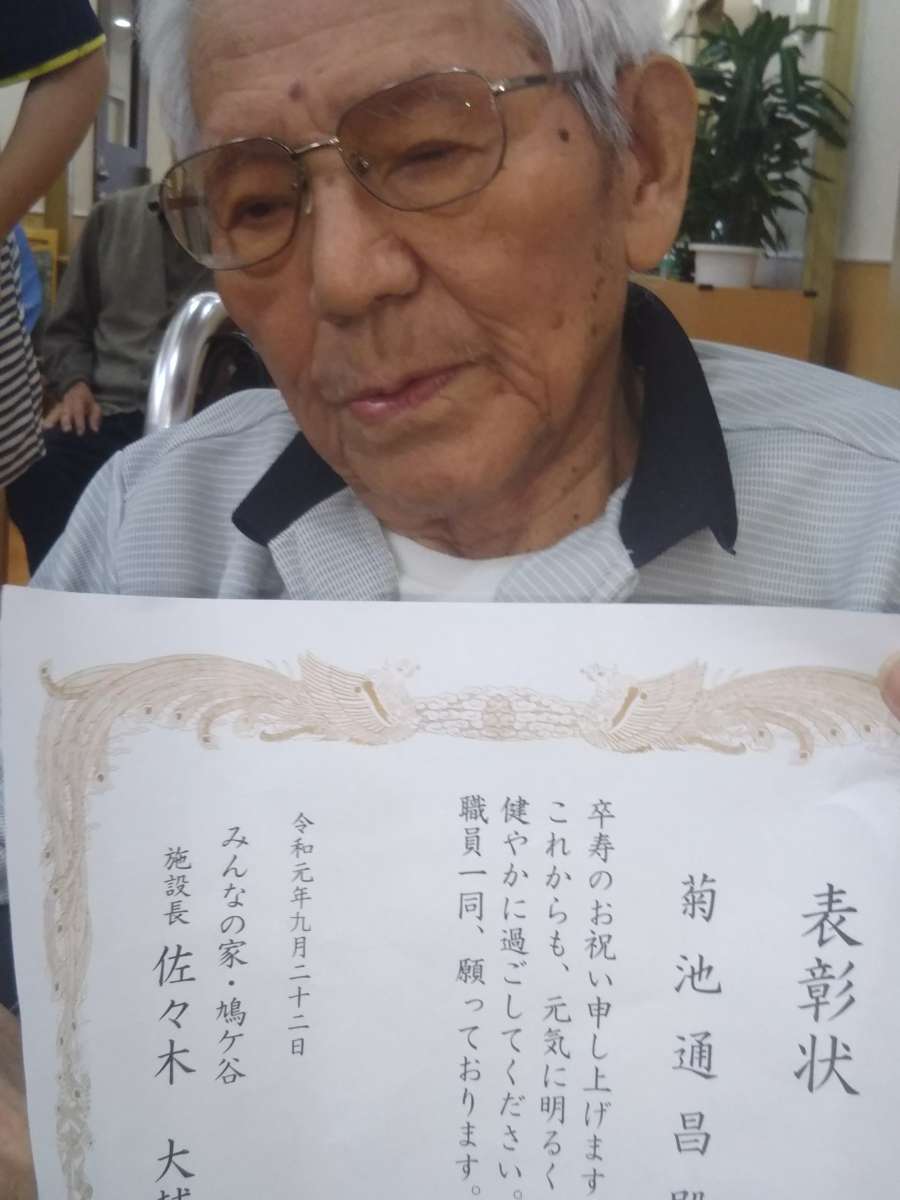 表彰状
菊池通昌殿
卒寿のお祝い申し上げます
これからも、元気に明るく
健やかに過ごしてください。
職員一同、願っております。
令和元年九月二十二日
みんなの家・鳩ケ谷
施設長 佐々木 大